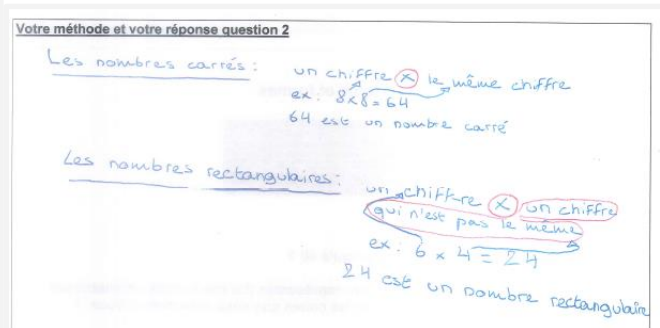 Votre méthode et votre réponse question 2
Les nombres carrés :
un chiffre x le même chiffre
ex : 8x8 = 64
64 est un nombre carré
Les nombres rectangulaires :
un chiffre x un chiffre
qui n'est pas le même
ex : 6 x 4 = 24
24 est un nombre rectangulaire